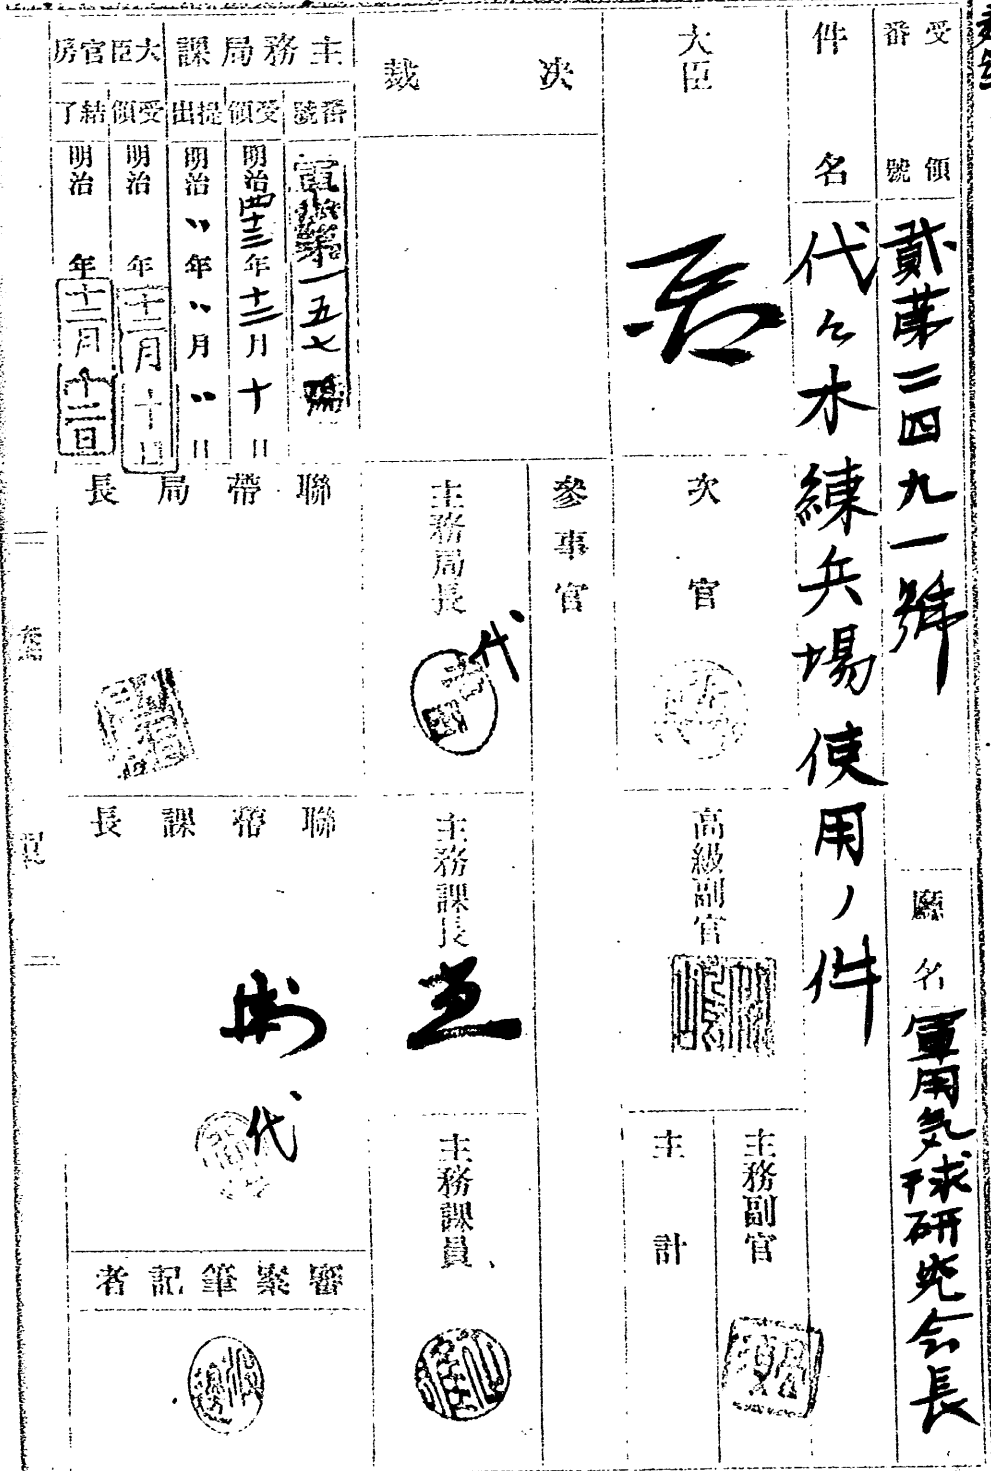 受領番號
貳第二四九一號
廳名
軍用気球研究会長
件名
代々木練兵場使用ノ件
大臣
次官
高級副官
主務副官
主計
決裁
參事官
主務局長
代
主務課長
主務課員
主務局課
番號
第一五七號
受領
明治四十三年十二月十日
提出
明治〃年〃月〃日
大臣官房
受領
明治 年十二月十日
結了
明治 年十二月十二日
聯帶局長
聯帶課長
代
審案筆記者